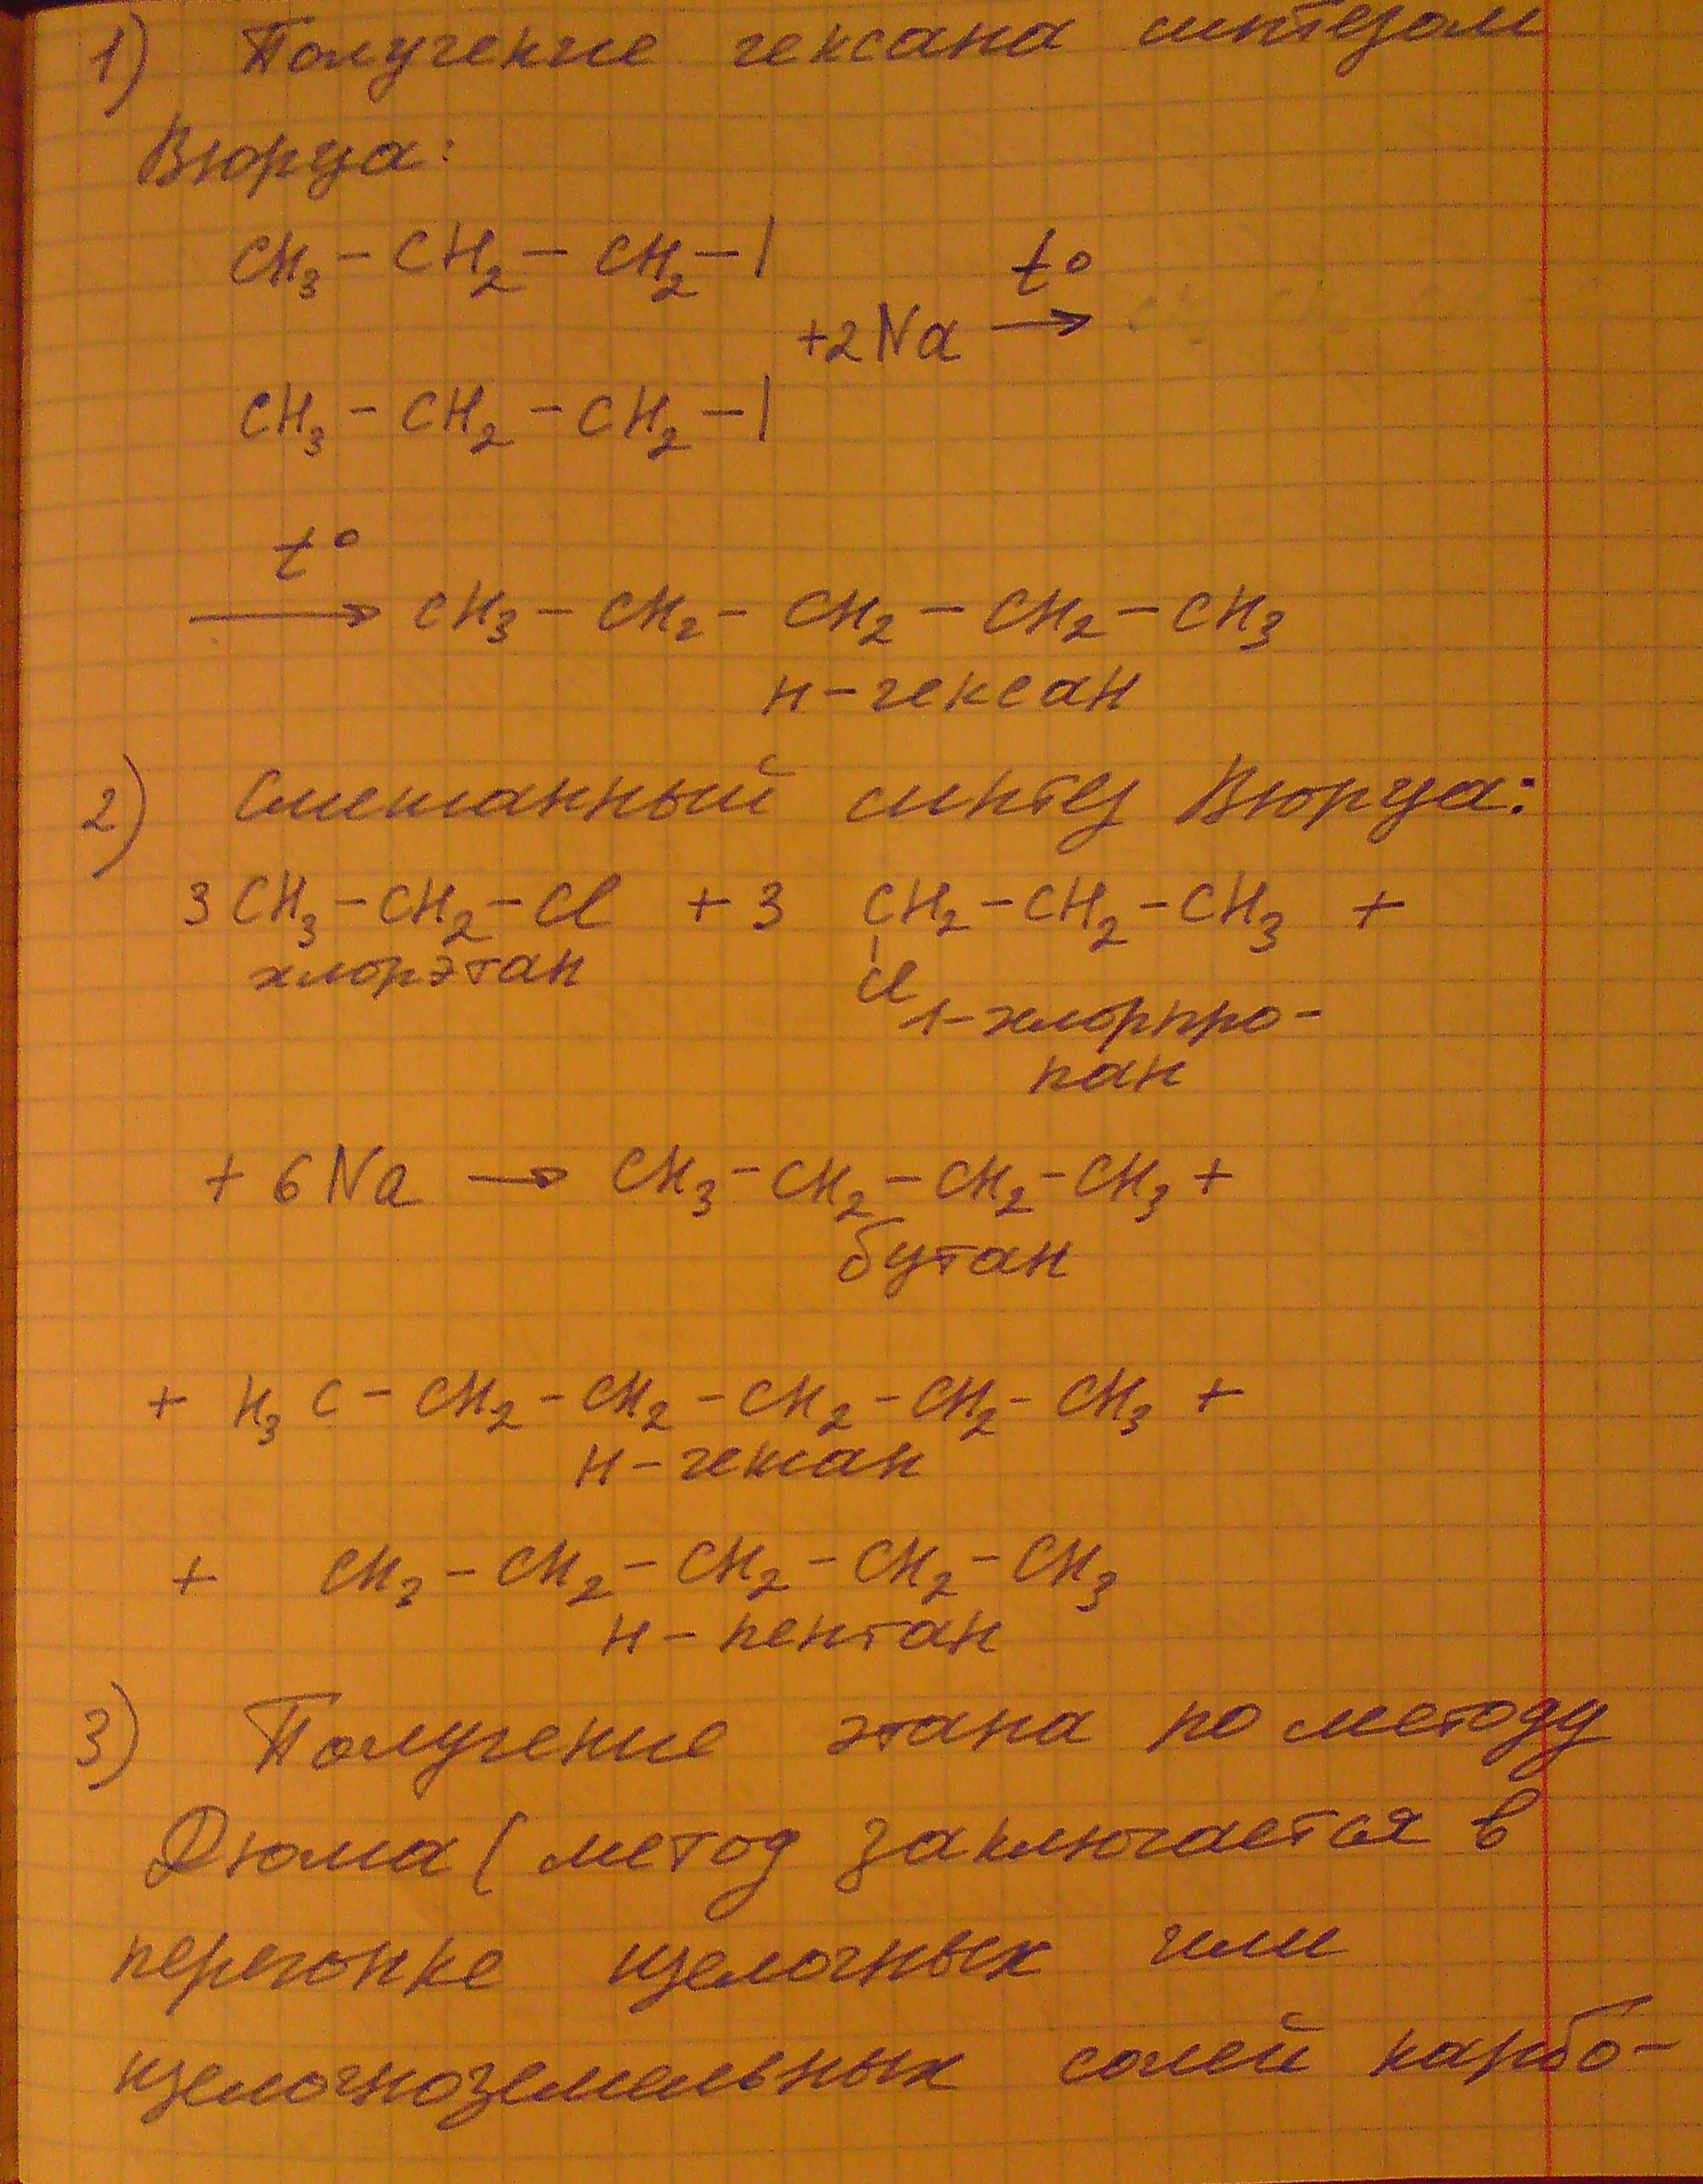 1) Получение гексана синтезом
Вюрца:
CH₃ – CH₂ – CH₂ – I
t°
+2Na →
CH₃ – CH₂ – CH₂ – I
t°
→ CH₃ – CH₂ – CH₂ – CH₂ – CH₃
н-гексан
2) Смешанный синтез Вюрца:
3 CH₃ – CH₂ – Cl + 3 CH₂ – CH₂ – CH₃ +
хлорэтан Cl
1-хлорпро-
пан
+ 6 Na → CH₃ – CH₂ – CH₂ – CH₃ +
бутан
+ H₃C – CH₂ – CH₂ – CH₂ – CH₂ – CH₃ +
н-гексан
+ CH₃ – CH₂ – CH₂ – CH₂ – CH₃
н-пентан
3) Получение этана по методу
Дюма (метод заключается в
перегонке щелочных или
щелочноземельных солей карбо-